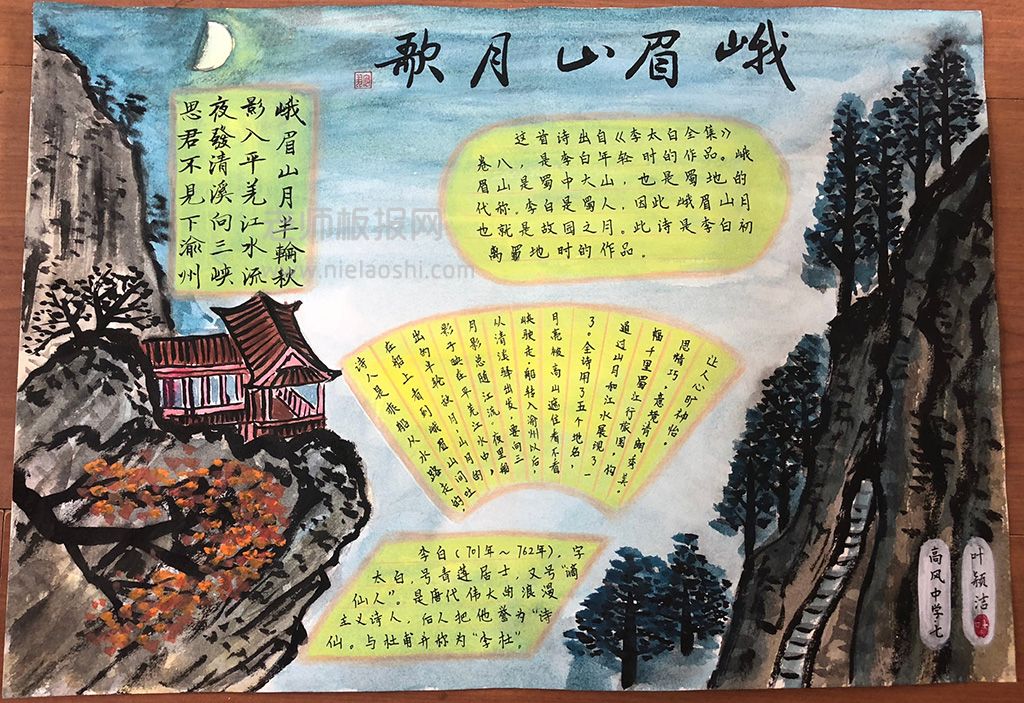 峨眉山月歌
峨眉山月半輪秋
影入平羌江水流
夜發清溪向三峡
思君不見下渝州
这首诗出自《李太白全集》
卷八，是李白年轻时的作品。峨
眉山是蜀中大山，也是蜀地的
代称。李白是蜀人，因此峨眉山月
也就是故园之月。此诗是李白初
离蜀地时的作品。
诗人是乘船从水路走的。
在船上看到峨眉山间吐
出的半轮秋月，山月的
影子映在平羌江水中，
月影总随江流。夜里船
从清溪驿出发，要向三
峡驶走，船转入渝州以后，
月亮被高山遮住看不看
了。全诗用了五个地名，
通过山月和江水展现了一
幅千里蜀江行旅图，构
思精巧，意境清朗秀美。
让人心旷神怡。
李白（701年～762年），字
太白，号青莲居士，又号“谪
仙人”。是唐代伟大的浪漫
主义诗人，后人把他誉为“诗
仙。与杜甫并称为“李杜”。
叶颖洁
高风中学七
老师板报网
www.nielaoshi.com